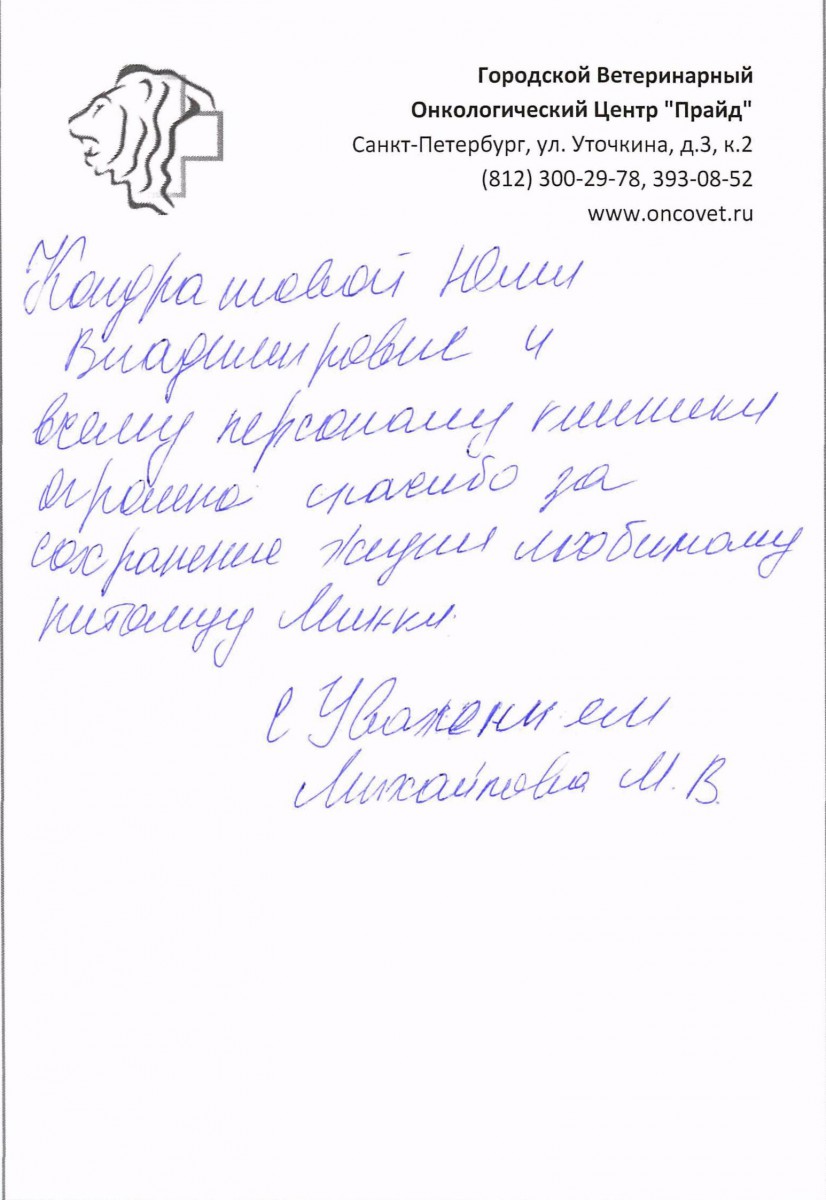 Городской Ветеринарный
Онкологический Центр "Прайд"
Санкт-Петербург, ул. Уточкина, д.3, к.2
(812) 300-29-78, 393-08-52
www.oncovet.ru
Кондрашовой Юлии
Владимировне и
всему персоналу клиники
огромно спасибо за
сохранение жизни любимому
питомцу Микки
с Уважением
Михайлова М. В.